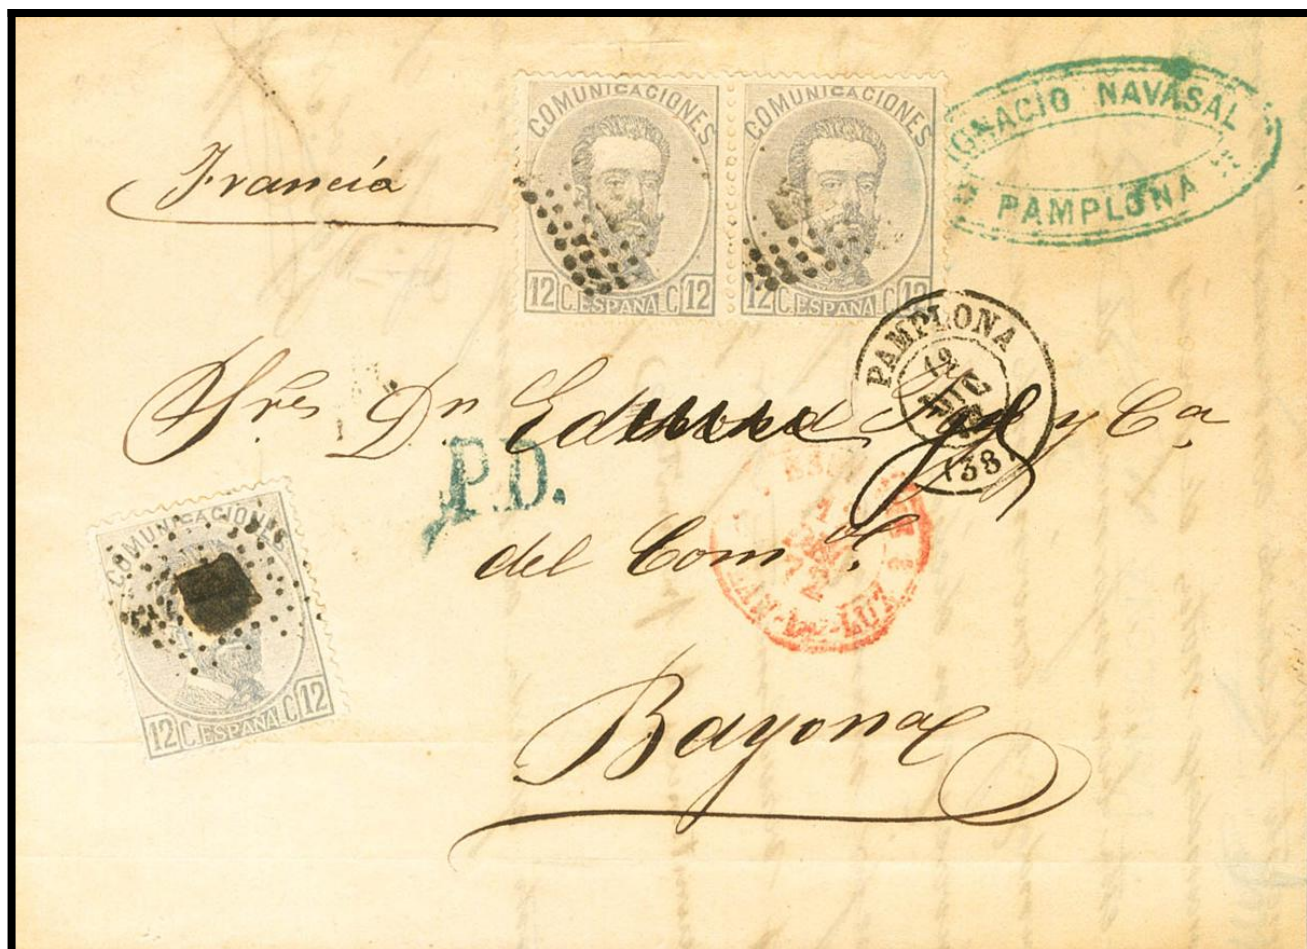 COMUNICACIONES
12 C. ESPAÑA C 12
COMUNICACIONES
12 C. ESPAÑA C 12
IGNACIO NAVASAL
PAMPLONA
Francia
PAMPLONA
(38)
Sres Dn y Ca
P.D.
del Comº
LUZ
COMUNICACIONES
12 C. ESPAÑA C 12
Bayona